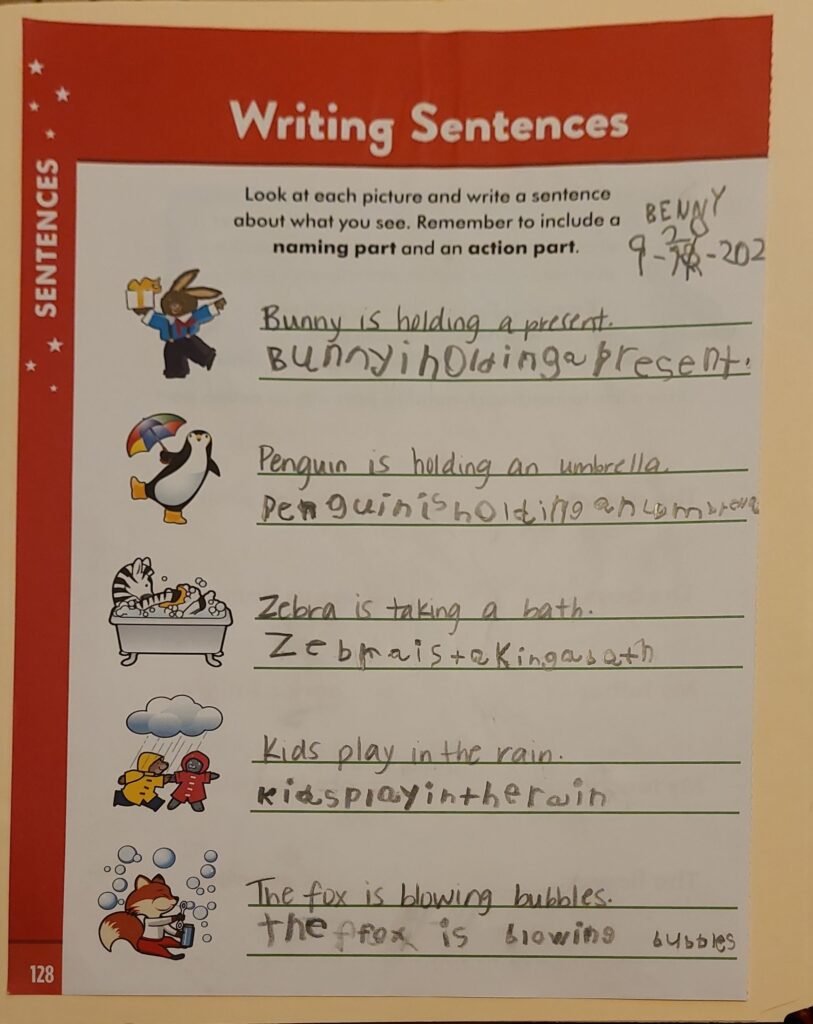 Writing Sentences
SENTENCES
Look at each picture and write a sentence
about what you see. Remember to include a
naming part and an action part.
BENNY
9-20-202
Bunny is holding a present.
Bunnyiholdingapresent.
Penguin is holding an umbrella.
Penguinisholdinganumbrella
Zebra is taking a bath.
Zebraistakingabath
Kids play in the rain.
kidsplayintherain
The fox is blowing bubbles.
the fox is blowing bubbles
128